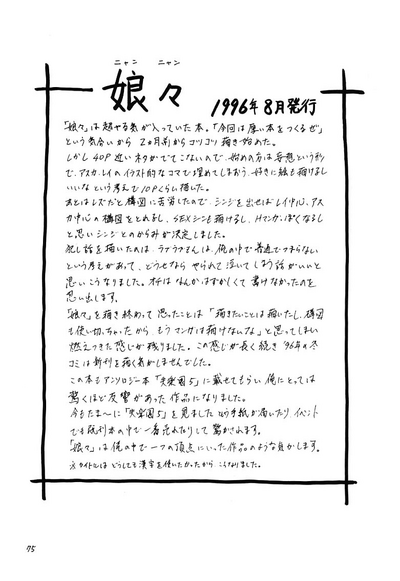 ニャン ニャン
娘々 1996年8月発行
「娘々」は超やる気が入っていた本。「今回は厚い本をつくるぜ」
という気合いから 2ヵ月前からコツコツ描き始めた。
しかし40P近いネタがでてこないので、始めの方は妄想という形
で、アスカ、レイのイラスト的なコマで埋めてしまおう、好きに絵も描けるし
いいな という考えで10Pくらい描いた。
あとはレズだと構図に苦労したので、シンジを出せばレイ中心、アス
カ中心の構図をとれるし、SEXシーンも描けるし、Hマンガぽくなるし
と思いシンジとのからみが決定しました。
んは、俺の中で普通でつまらない
という考えがあって、どうせなら やられて浮いてしまう話がいいと
思いこうなりました。オチはなんかはずかしくて書けなかったのを
思い出します。
「娘々」を描き終わって思ったことは「描きたいことは描いたし、構図
も使い切っちゃったから もうマンガは描けないな」と思ってしまい
燃えつきた感じが残りました。この感じが長く続き '96年の冬
コミは新刊を描く気がしませんでした。
この本もアンソロジー本「失楽園5」に載せてもらい俺にとっては
驚くほど反響があった作品になりました。
今もたま〜に「失楽園5」を見ましたという手紙が届いたり イベント
でも既刊本の中で一番売れたりして驚かされます。
「娘々」は俺の中で一つの頂点にいった作品のような気がします。
タイトルは どうしても漢字を使いたかったから こうなりました。
75